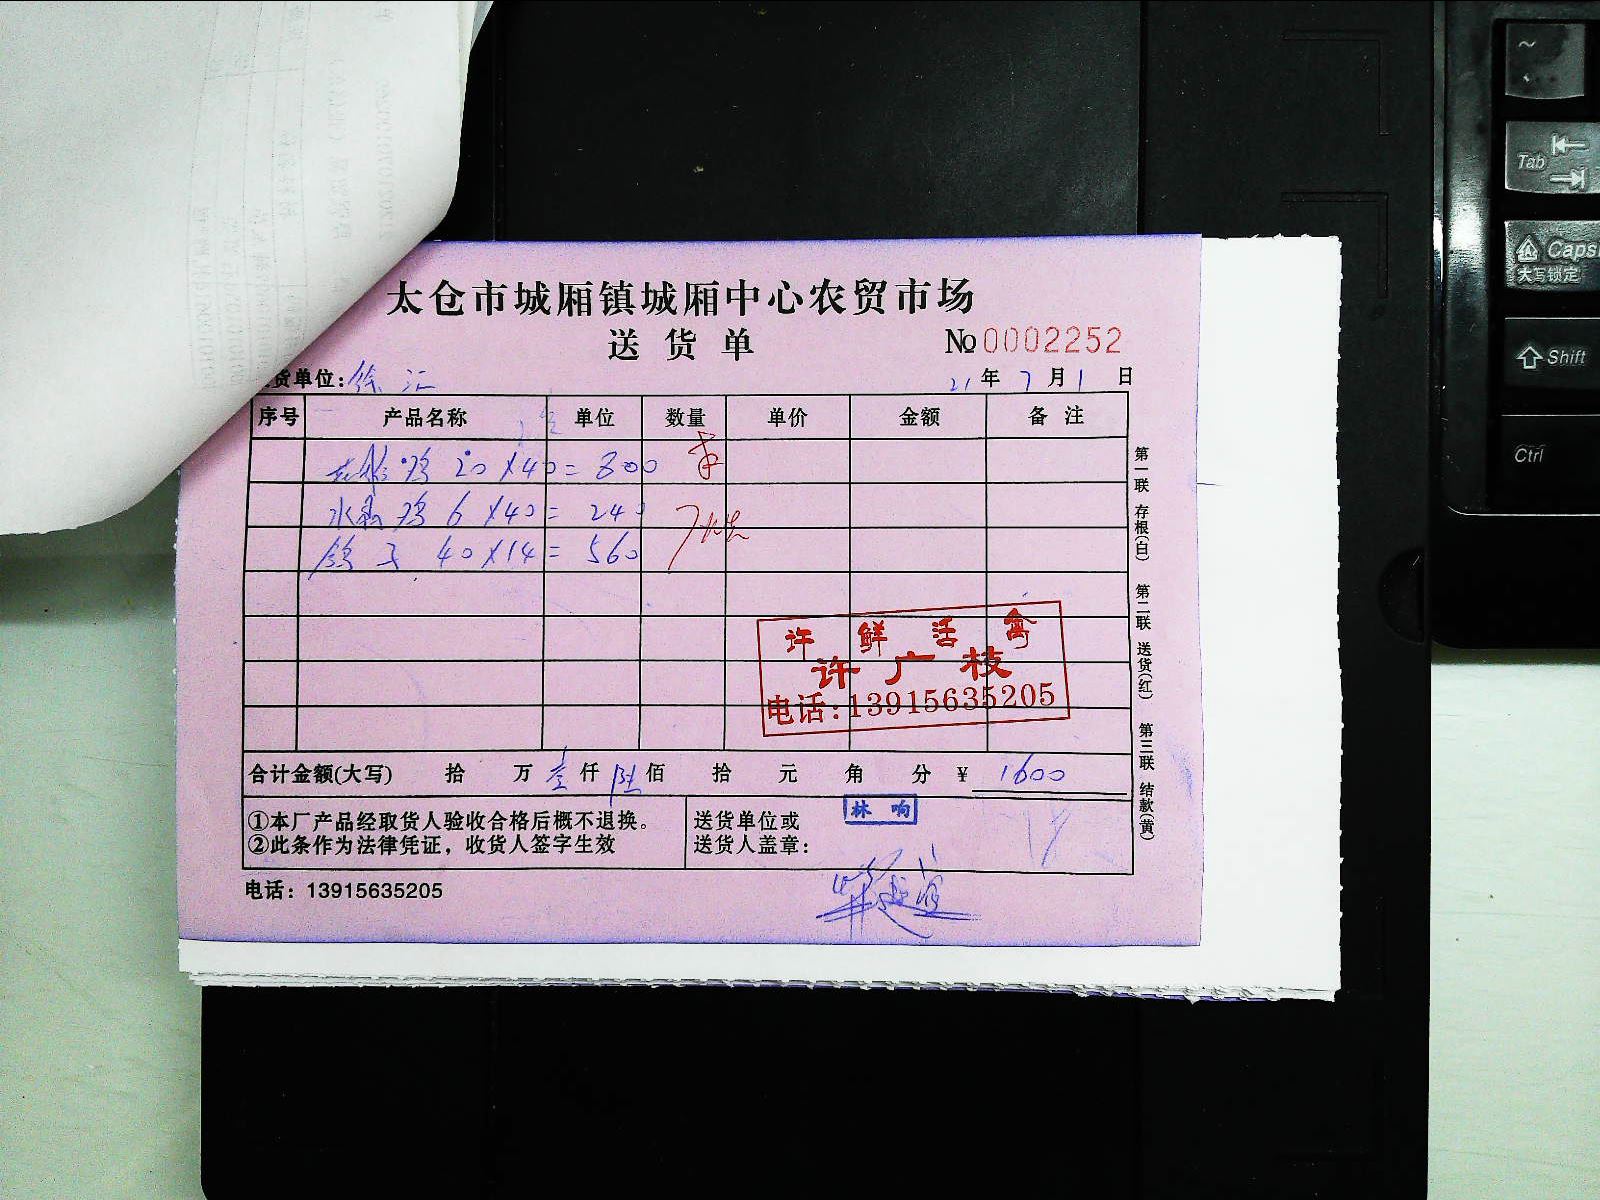 太仓市城厢镇城厢中心农贸市场
送货单
№0002252
货单位:徐汇
21年7月1日
序号 产品名称 单位 数量 单价 金额 备注
鸡 20×40=800
水 鸡 6×40=240
鸽子 40×14=560
许鲜活禽
许广枝
电话:13915635205
合计金额(大写) 拾 万壹仟陆佰 拾 元 角 分 ¥ 1600
①本厂产品经取货人验收合格后概不退换。
②此条作为法律凭证,收货人签字生效
送货单位或
送货人盖章:
林响
电话:13915635205
第一联 存根(白) 第二联 送货(红) 第三联 结款(黄)
~
Tab
Caps
大写锁定
Shift
Ctrl